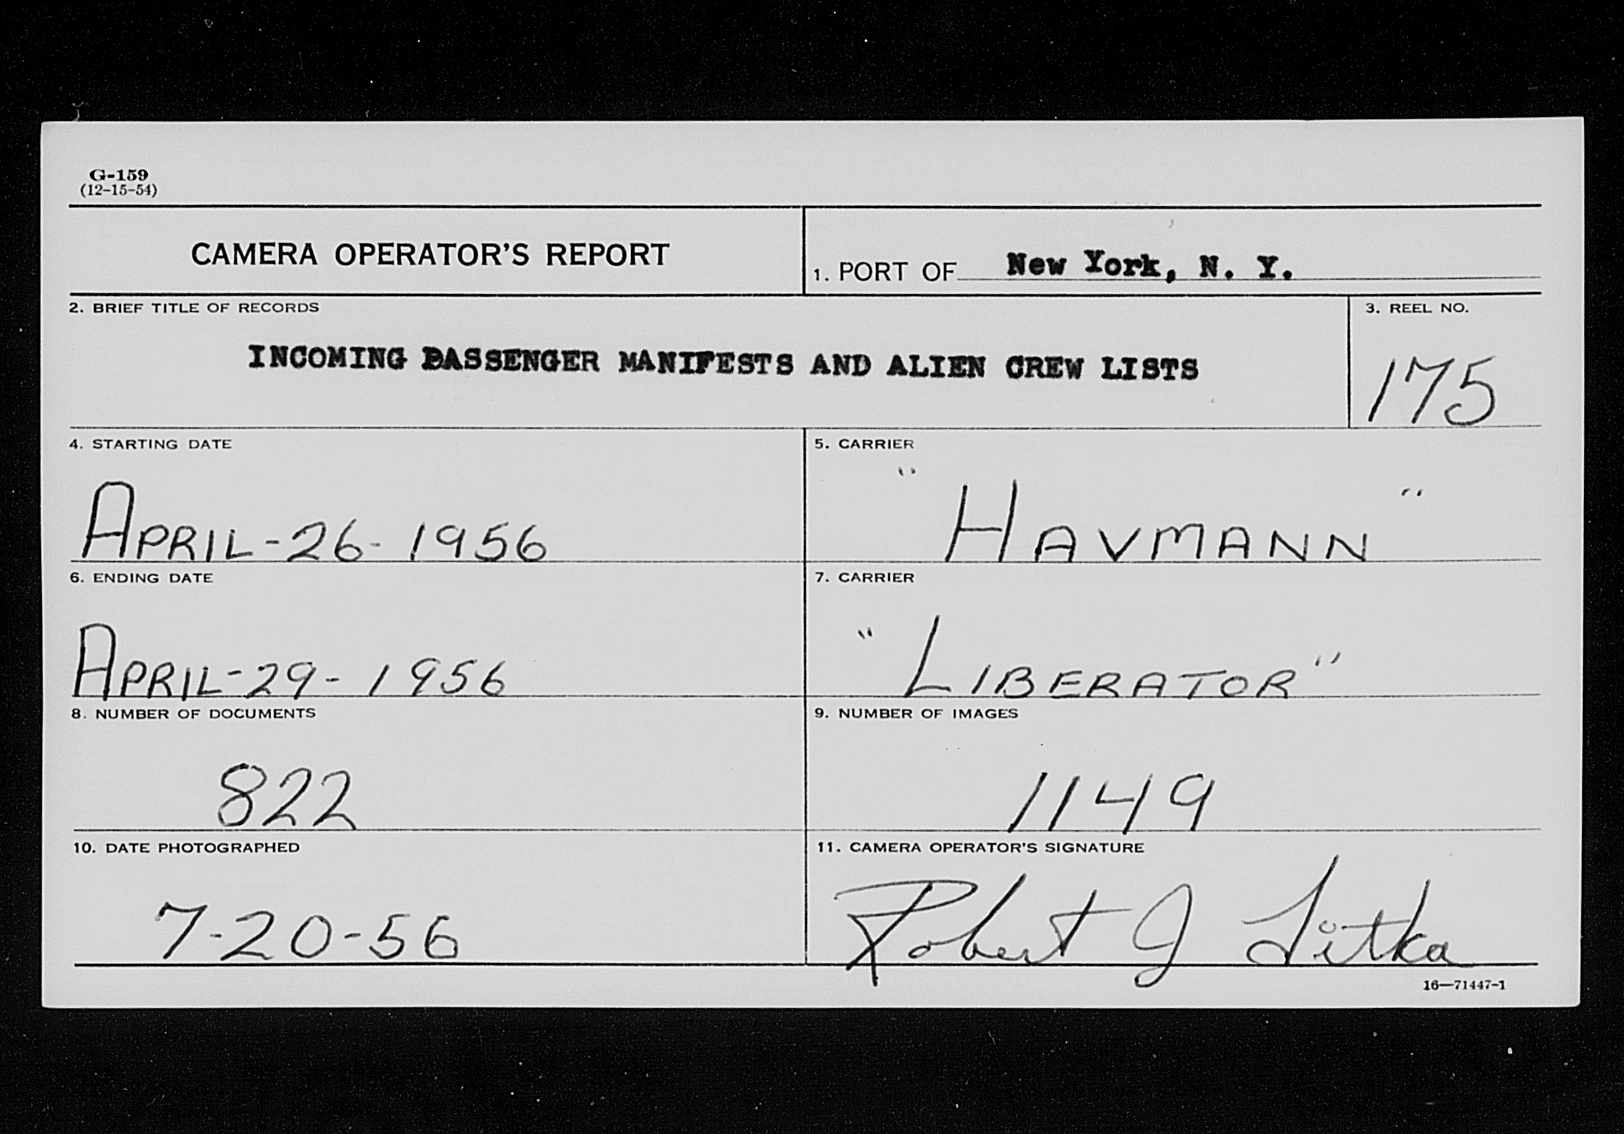 G-159
(12-15-54)
CAMERA OPERATOR'S REPORT
1. PORT OF New York, N. Y.
2. BRIEF TITLE OF RECORDS
INCOMING PASSENGER MANIFESTS AND ALIEN CREW LISTS
3. REEL NO.
175
4. STARTING DATE
APRIL-26-1956
5. CARRIER
"HAVMANN"
6. ENDING DATE
APRIL-29-1956
7. CARRIER
"LIBERATOR"
8. NUMBER OF DOCUMENTS
822
9. NUMBER OF IMAGES
1149
10. DATE PHOTOGRAPHED
7-20-56
11. CAMERA OPERATOR'S SIGNATURE
Robert J Litka
16—71447-1